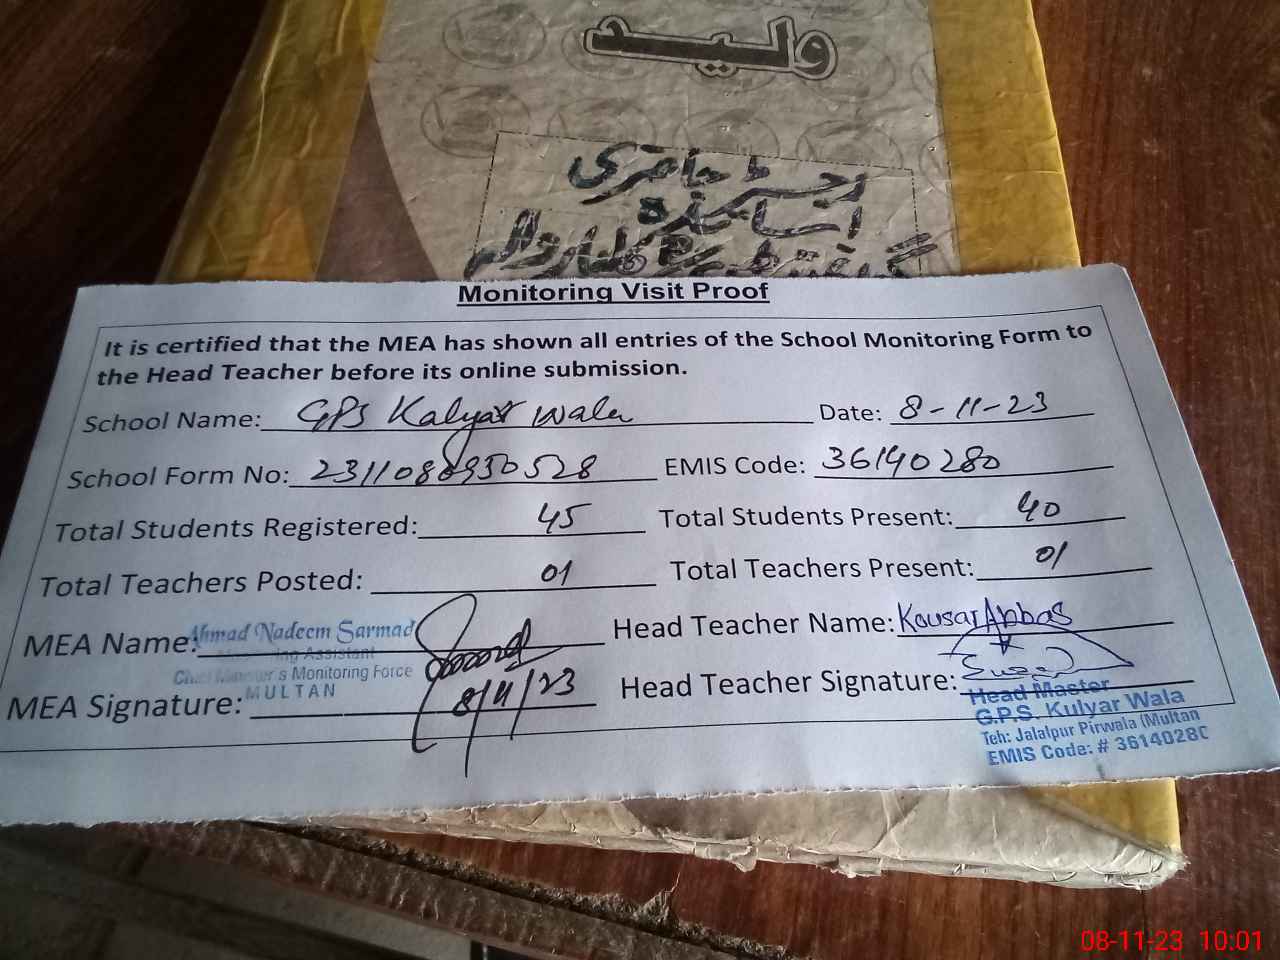 ولید
رجسٹر حاضری
اساتذہ
Monitoring Visit Proof
It is certified that the MEA has shown all entries of the School Monitoring Form to
the Head Teacher before its online submission.
School Name: GPS Kalyar Wala Date: 8-11-23
School Form No: 2311088950528 EMIS Code: 36140280
Total Students Registered: 45 Total Students Present: 40
Total Teachers Posted: 01 Total Teachers Present: 01
MEA Name: Ahmad Nadeem Sarmad Head Teacher Name: Kousar Abbas
Monitoring Assistant
Chief Minister's Monitoring Force
MULTAN
MEA Signature: 8/11/23 Head Teacher Signature:
Head Master
G.P.S. Kulyar Wala
Teh: Jalalpur Pirwala (Multan
EMIS Code: # 36140280
08-11-23 10:01